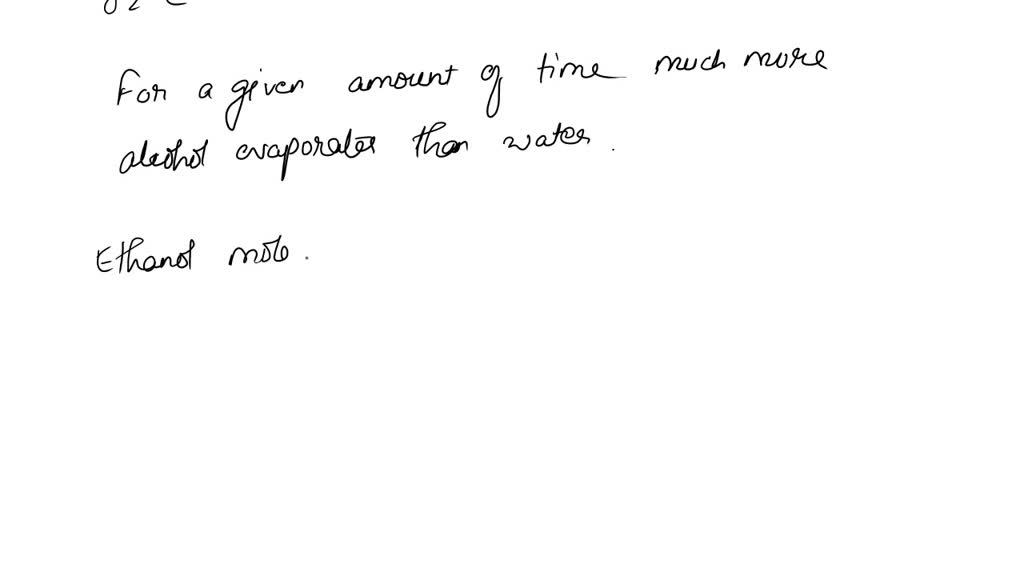 For a given amount of time much more
alcohol evaporates than water.
Ethanol mole.